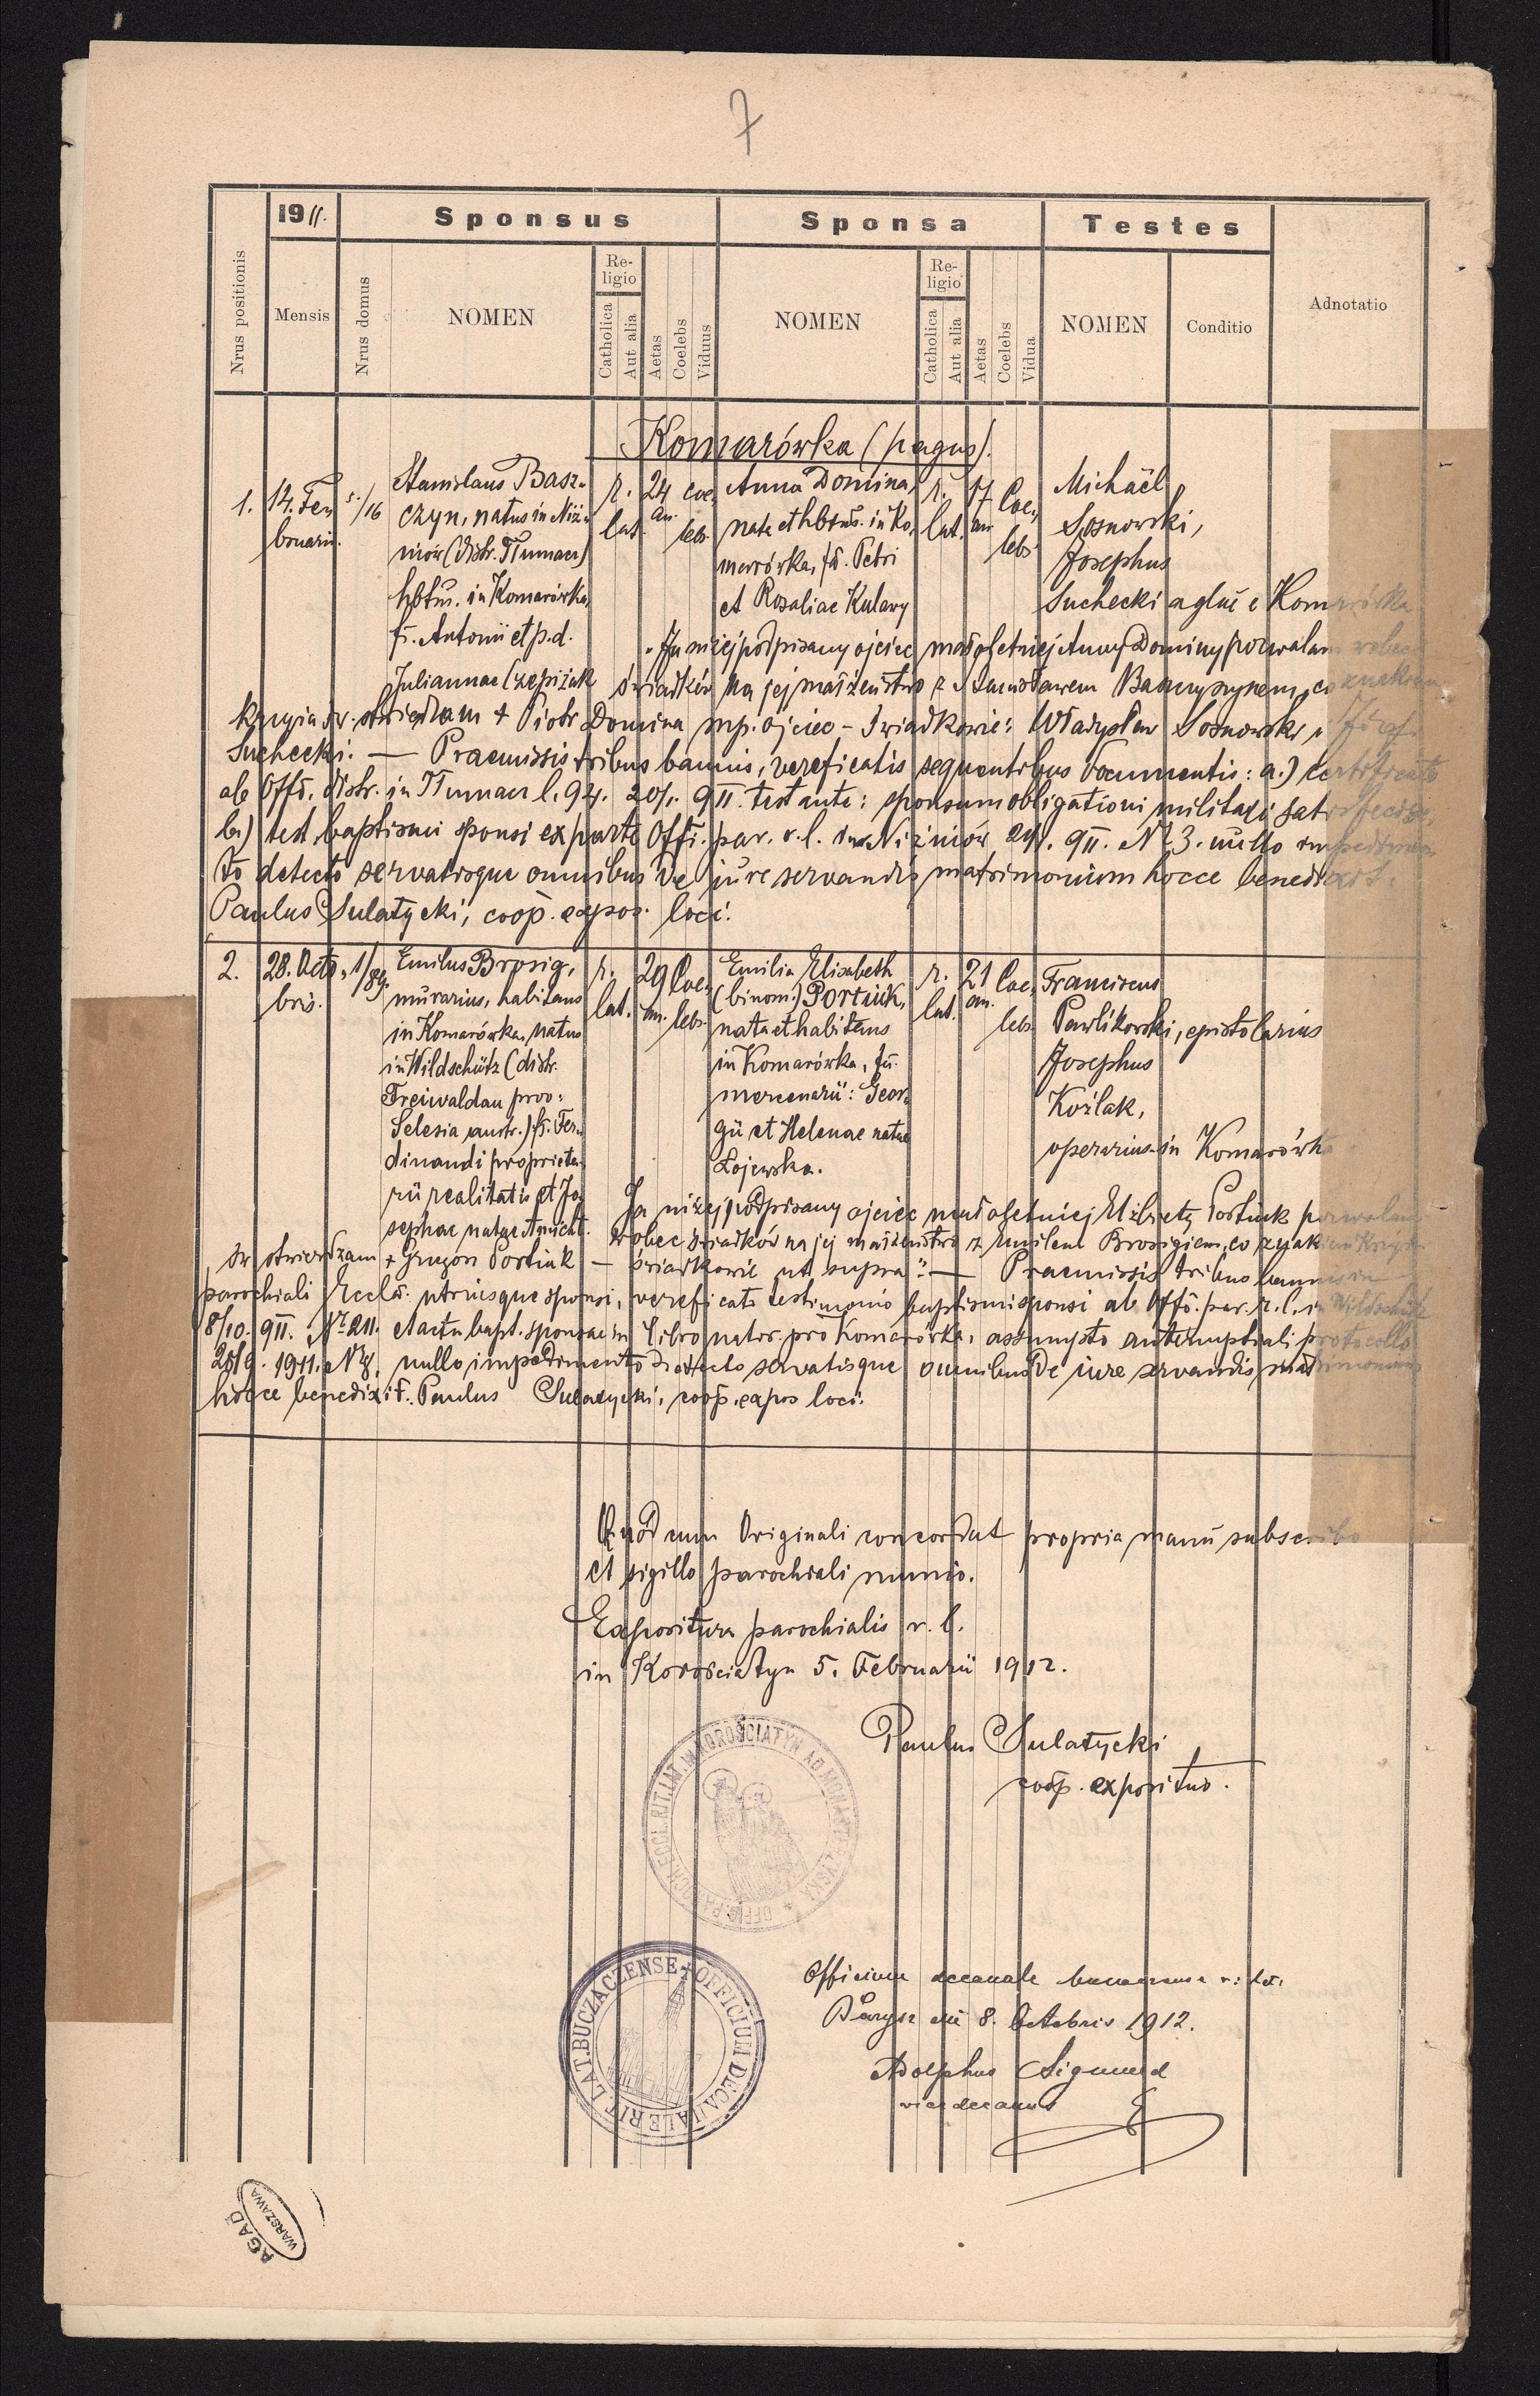 7
1911. Sponsus Sponsa Testes
Nrus positionis Mensis Nrus domus NOMEN Religio Catholica Aut alia Aetas Coelebs Viduus NOMEN Religio Catholica Aut alia Aetas Coelebs Vidua NOMEN Conditio Adnotatio
Komarówka (pagus).
1. 14. Fe- 5./16 Stanislaus Basz- r. 24 coe- Anna Domina, r. 17 Coe- Michäel
bruarii. czyn, natus in Niż- lat. an. lebs. nata et hbtns. in Ko- lat. an. lebs. Sosnowski,
niów (distr. Tłumacz) marówka, fa. Petri Josephus
hbtns. in Komarówka, et Rozaliae Kulawy Suchecki agluc e Komarówka
fs. Antonii et p.d. „Ja niżej podpisany ojciec małoletniej Anny Dominy pozwalam wobec
Juliannae Czepiżak świadków na jej małżeństwo z Stanisławem co znakiem
krzyża św. stwierdzam + Piotr Domina mp. ojciec – Świadkowie: Władysław Sosnowski i Józef
Suchecki. — Praemissis tribus bannis, vereficatis sequentibus documentis: a.) certificato
ab Offo. distr. in Tłumacz l. 94. 20/1. 911. testante: sponsum obligationi militari satisfecisse,
b.) test. baptismi sponsi ex parte Offi. par. r. l. in Niżniów 911. No 3. nullo impedimen-
to detecto servatisque omnibus de jure servandis matrimonium hocce benedixit.
Paulus Sulatycki, coop. expos. loci.
2. 28. Octo- 1/89. Emilus Brosig, r. 29 Coe- Emilia Elisabeth r. 21 Coe- Franciscus
bris. murarius, habitans lat. an. lebs. (binom.) Portiuk, lat. an. lebs. Pawlikowski, epistolarius
in Komarówka, natus nata et habitans Josephus
in Wildschütz (distr. in Komarówka, fa. Koźlak,
Freiwaldau prov. mercenarii: Geor- operarius in Komarówka
Selesia austr.) fs. Fer- gii et Helenae natae
dinandi proprieta- Łojewska.
rii realitatis et Jo- Ja niżej podpisany ojciec małoletniej Elżbiety Portiuk pozwalam
sephae natae wobec świadków na jej małżeństwo z Emilem Brosigiem, co znakiem krzyża
św. stwierdzam + Grzegorz Portiuk — świadkowie ut supra". — Praemissis tribus bannis in
parochiali Eccla. utriusque sponsi, vereficato testimonio baptismi sponsi ab Offo. par. r. l. in Wildschütz
8/10. 911. No 211. et actu bapt. sponsae in libro nator. pro Komarówka, assumpto antenuptiali protocollo
1911. nullo impedimento detecto servatisque omnibus de iure servandis matrimonium
hocce benedixit. Paulus Sulatycki, coop. expos loci.
Quod cum Originali concordat propria manu subscribo
et sigillo parochiali munio.
Expositura parochialis r. l.
in Korościatyn 5. Februarii 1912.
Paulus Sulatycki
coop. expositus.
Officium decanale r: lat.
Barysz die 8. Octobris 1912.
Adolphus Sigmund
vicedecanus
OFFICIUM DECANALE RIT. LAT. BUCZACZENSE
AGAD
WARSZAWA